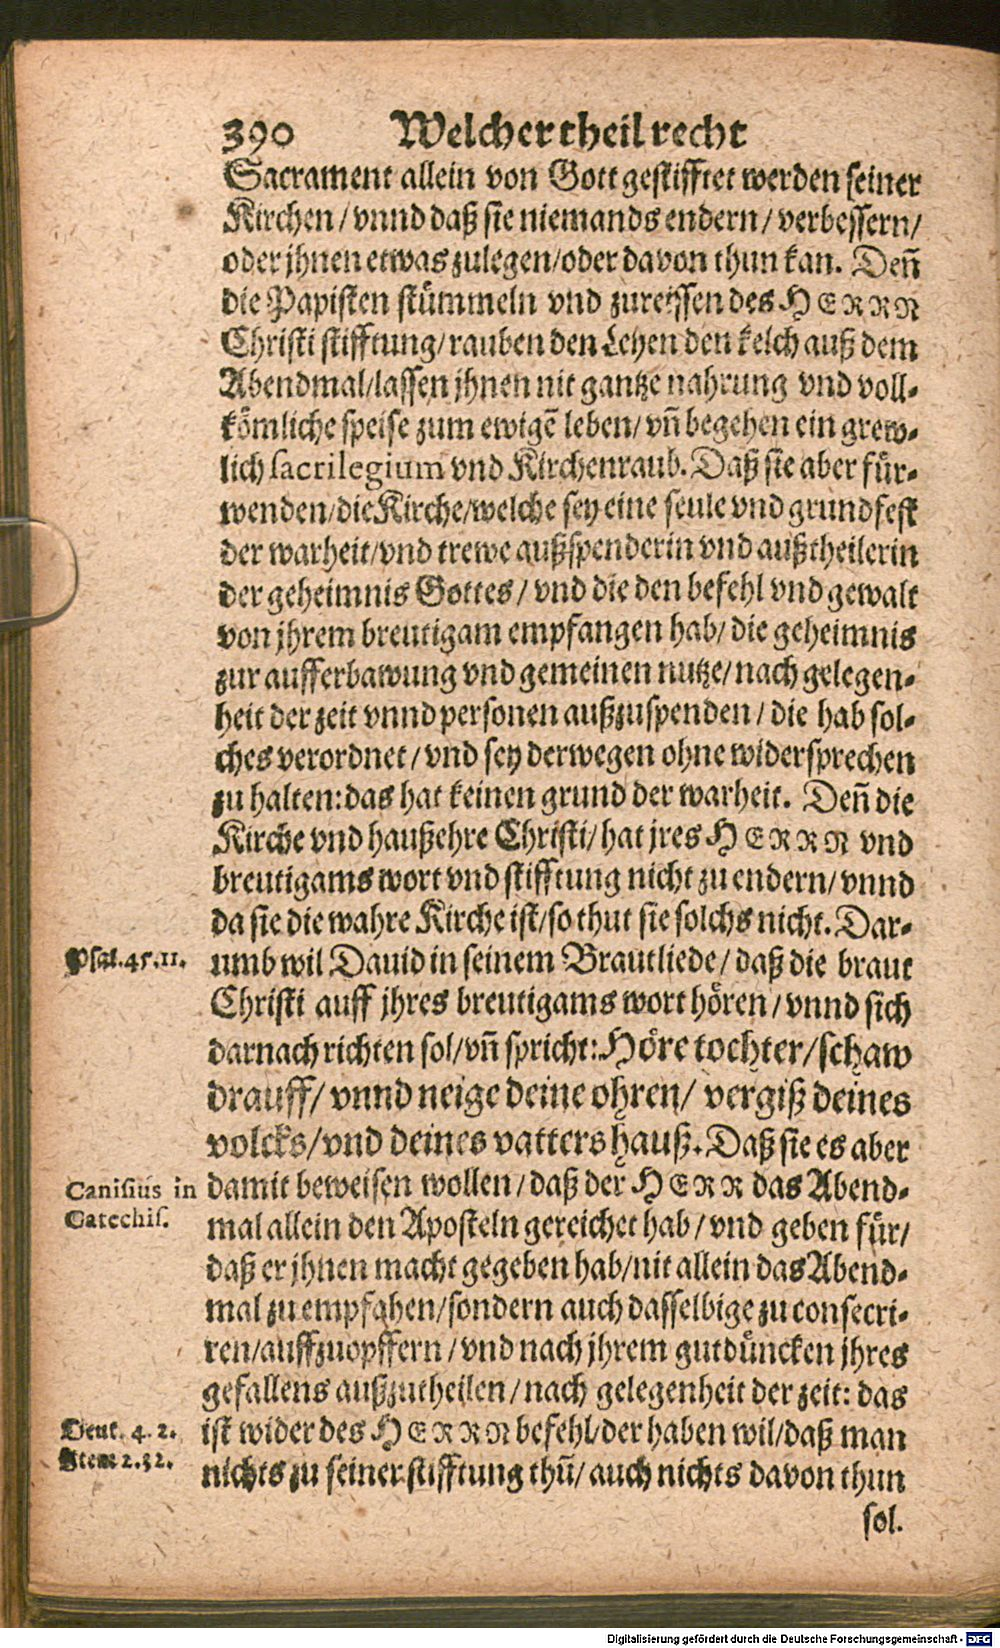 390 Welcher theil recht
Sacrament allein von Gott gestifftet werden seiner
Kirchen / vnnd daß sie niemands endern / verbessern /
oder jhnen etwas zulegen / oder davon thun kan. Deñ
die Papisten stümmeln vnd zureissen des HERRN
Christi stifftung / rauben den Leyen den kelch auß dem
Abendmal / lassen jhnen nit gantze nahrung vnd voll-
kömliche speise zum ewigẽ leben / vñ begehen ein grew-
lich sacrilegium vnd Kirchenraub. Daß sie aber für-
wenden / die Kirche / welche sey eine seule vnd grundfest
der warheit / vnd trewe außspenderin vnd außtheilerin
der geheimnis Gottes / vnd die den befehl vnd gewalt
von jhrem breutigam empfangen hab / die geheimnis
zur aufferbawung vnd gemeinen nutze / nach gelegen-
heit der zeit vnnd personen außzuspenden / die hab sol-
ches verordnet / vnd sey derwegen ohne widersprechen
zu halten: das hat keinen grund der warheit. Deñ die
Kirche vnd haußehre Christi / hat jres HERRN vnd
breutigams wort vnd stifftung nicht zu endern / vnnd
da sie die wahre Kirche ist / so thut sie solchs nicht. Dar-
Psal. 45. 11. umb wil Dauid in seinem Brautliede / daß die braut
Christi auff jhres breutigams wort hören / vnnd sich
darnach richten sol / vñ spricht: Höre tochter / schaw
drauff / vnnd neige deine ohren / vergiß deines
volcks / vnd deines vatters hauß. Daß sie es aber
Canisius in damit beweisen wollen / daß der HERR das Abend-
Catechis. mal allein den Aposteln gereichet hab / vnd geben für /
daß er jhnen macht gegeben hab / nit allein das Abend-
mal zu empfahen / sondern auch dasselbige zu consecri-
ren / auffzuopffern / vnd nach jhrem gutdüncken jhres
gefallens außzutheilen / nach gelegenheit der zeit: das
Deut. 4. 2. ist wider des HERRN befehl / der haben wil / daß man
Item 2.32. nichts zu seiner stifftung thũ / auch nichts davon thun
sol.
Digitalisierung gefördert durch die Deutsche Forschungsgemeinschaft - DFG